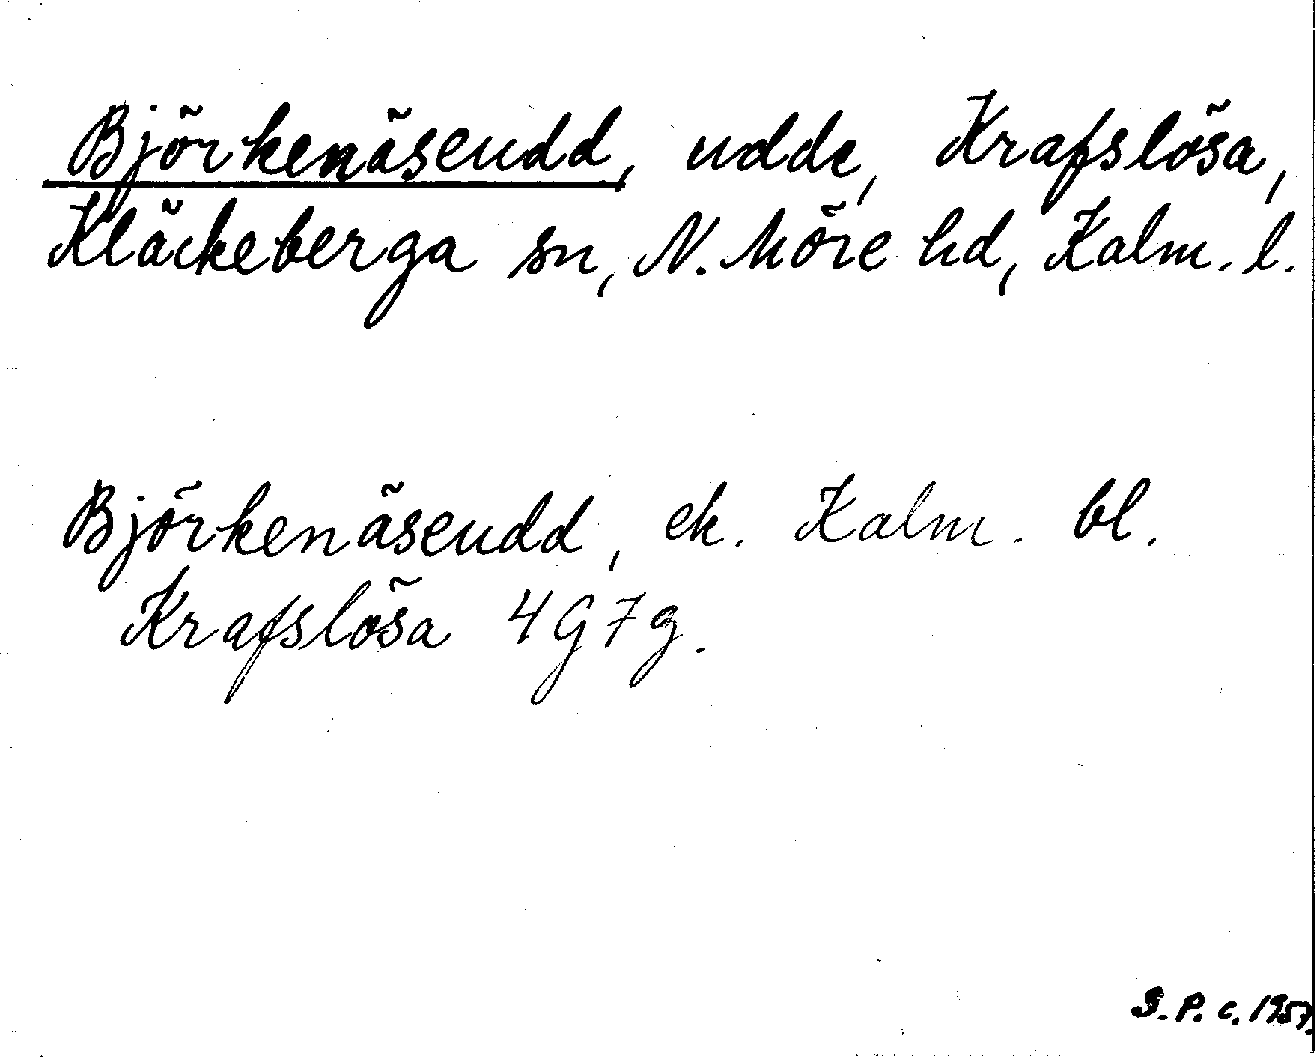 Björkenäseudd, udde, Krafslösa,
Kläckeberga sn, N. Möre hd, Kalm. l.
Björkenäseudd, ek. Kalm. bl.
Krafslösa 4G7g.
S. P. c. 1957.